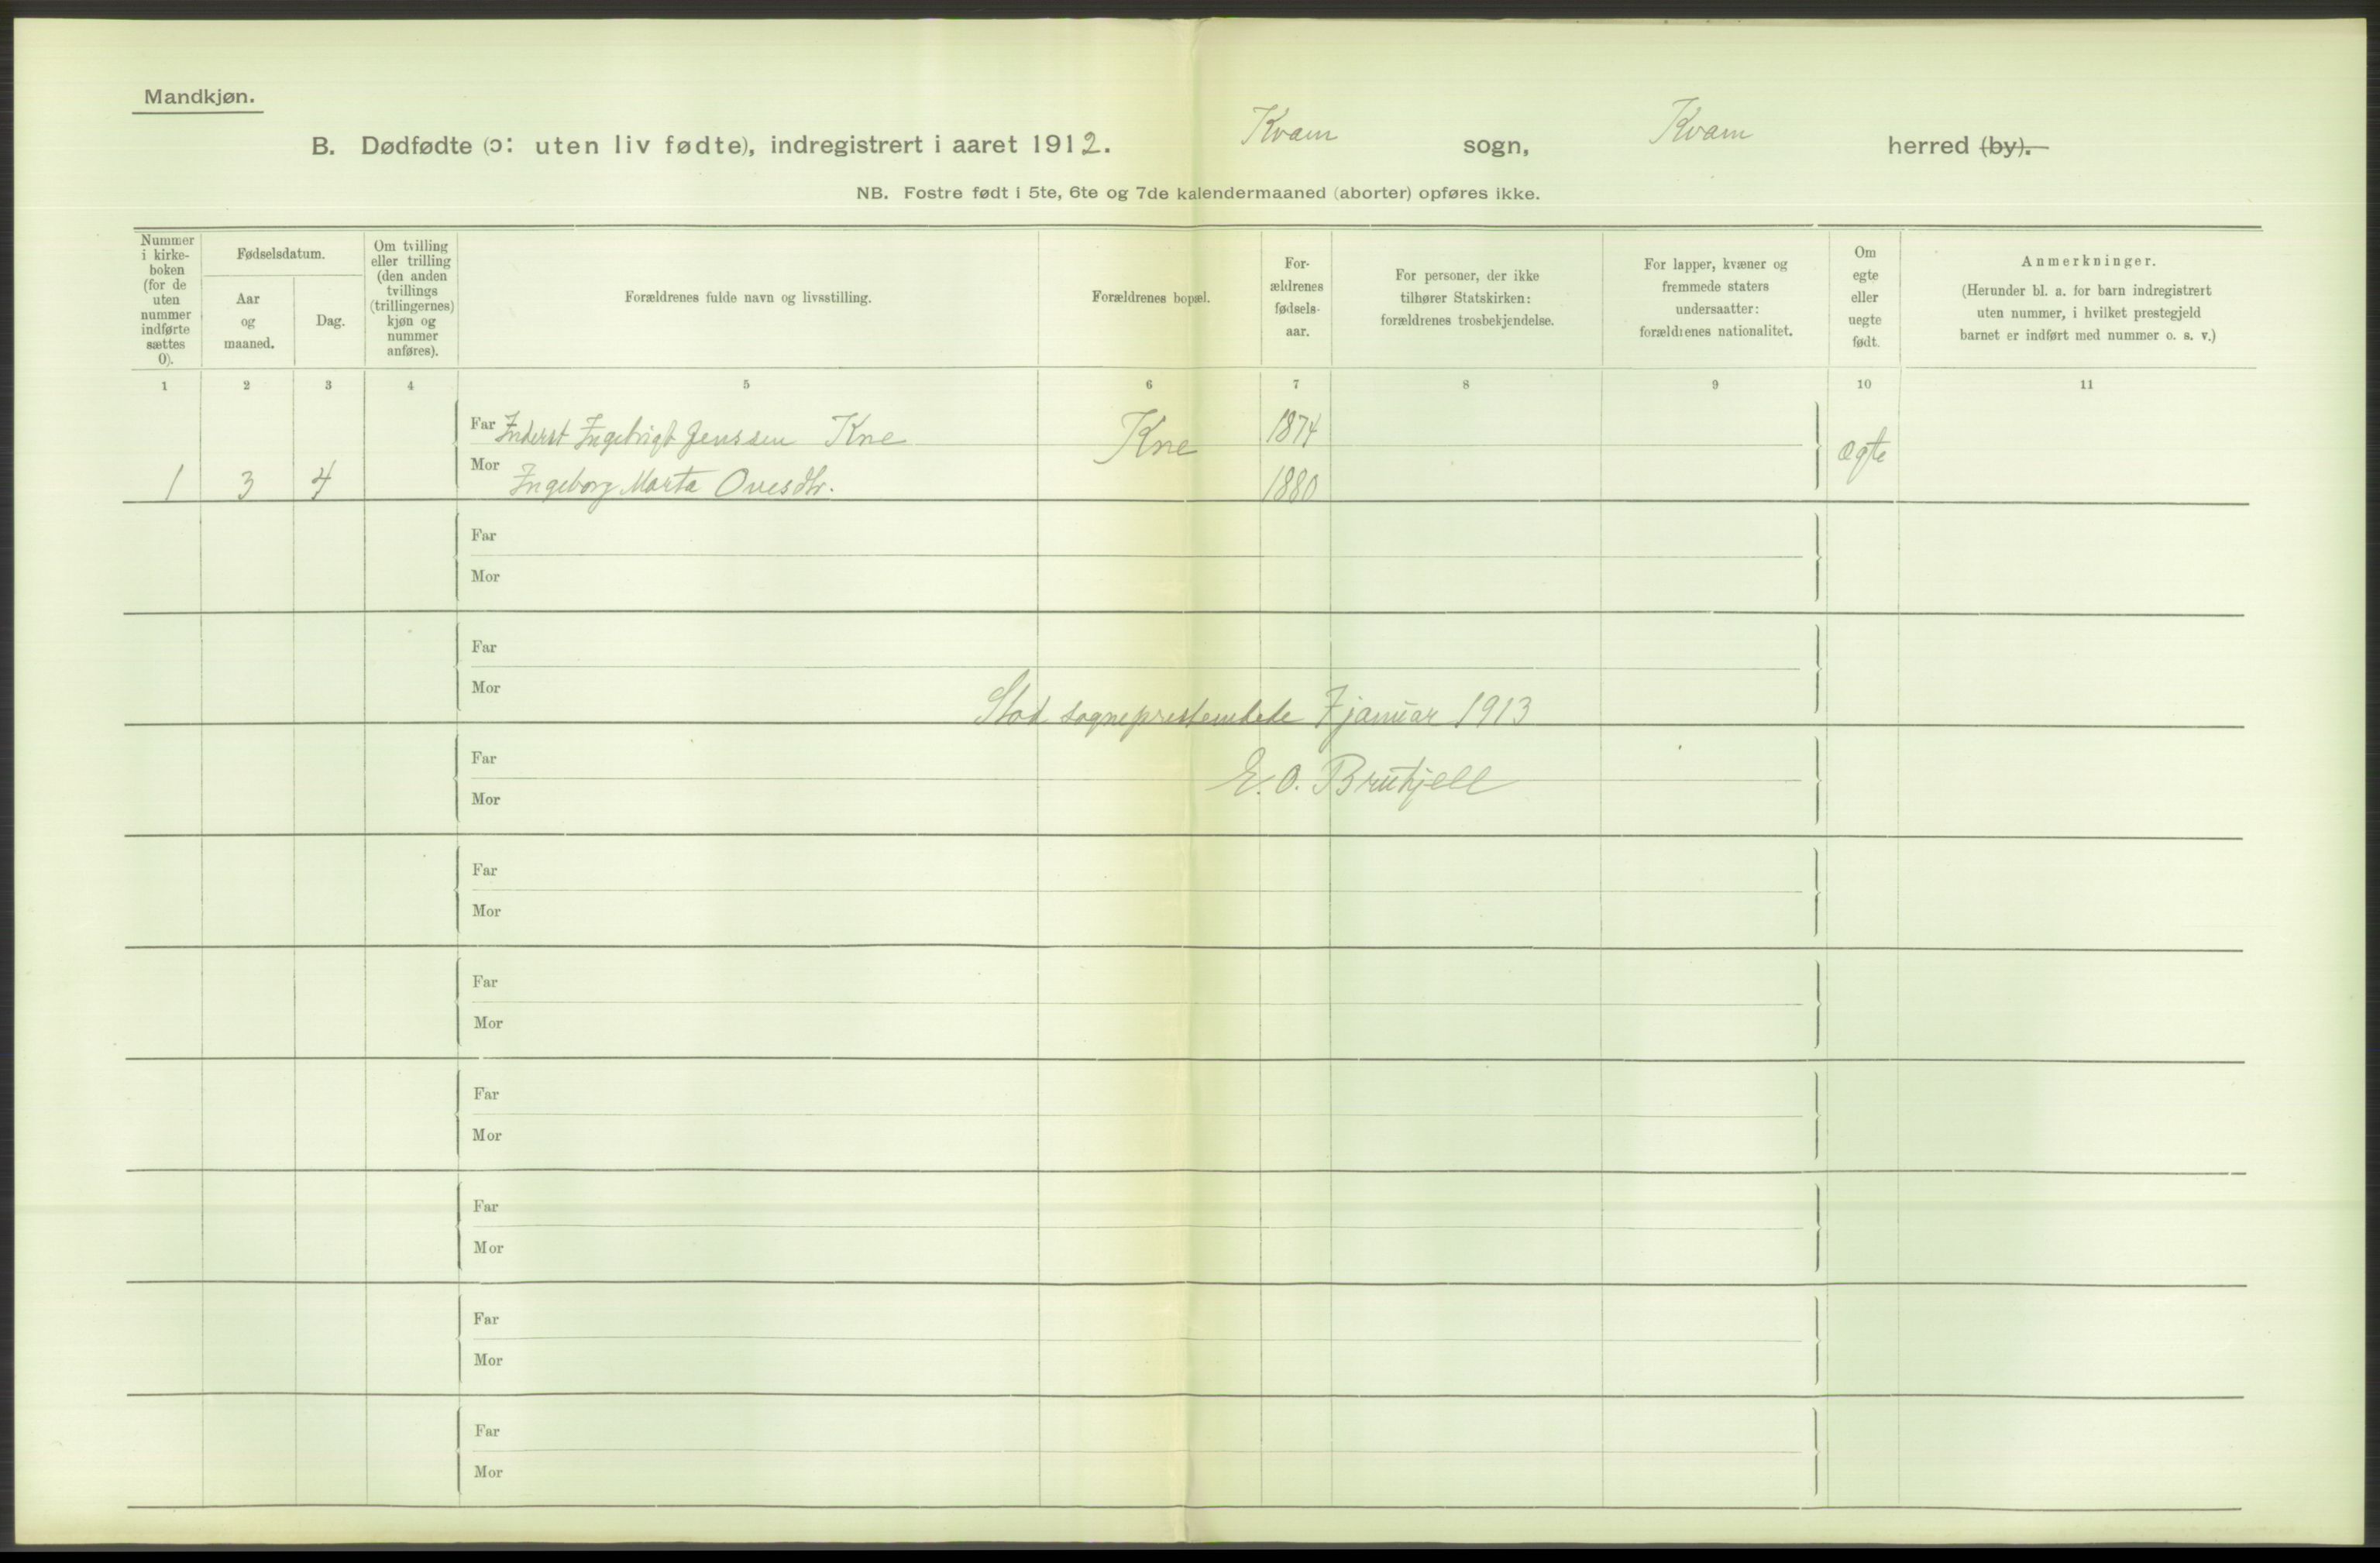 Mandkjøn.
B. Dødfødte (ɔ: uten liv fødte), indregistrert i aaret 1912. Kvam sogn, Kvam herred (by).
NB. Fostre født i 5te, 6te og 7de kalendermaaned (aborter) opføres ikke.
Nummer
i kirke-
boken
(for de
uten
nummer
indførte
sættes
0).
Fødselsdatum.
Aar
og
maaned.
Dag.
Om tvilling
eller trilling
(den anden
tvillings
(trillingernes)
kjøn og
nummer
anføres).
Forældrenes fulde navn og livsstilling.
Forældrenes bopæl.
For-
ældrenes
fødsels-
aar.
For personer, der ikke
tilhører Statskirken:
forældrenes trosbekjendelse.
For lapper, kvæner og
fremmede staters
undersaatter:
forældrenes nationalitet.
Om
egte
eller
uegte
født.
Anmerkninger.
(Herunder bl. a. for barn indregistrert
uten nummer, i hvilket prestegjeld
barnet er indført med nummer o. s. v.)
1 2 3 4 5 6 7 8 9 10 11
Far Inderst Ingebrigt Jenssen Kne Kne 1874 ægte
1 3 4 Mor Ingeborg Marta Ovesdtr. 1880
Far
Mor
Far
Mor
Stod sogneprestembede 7 januar 1913
Far
E. O. Brufjell
Mor
Far
Mor
Far
Mor
Far
Mor
Far
Mor
Far
Mor
Far
Mor